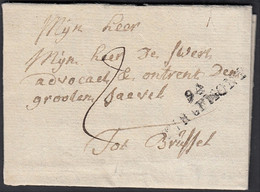 Mijn heer
Mijn heer De Swert
advocaet & ontrent den
grooten saevel
2
94
TIRLEMONT
Tot Brussel